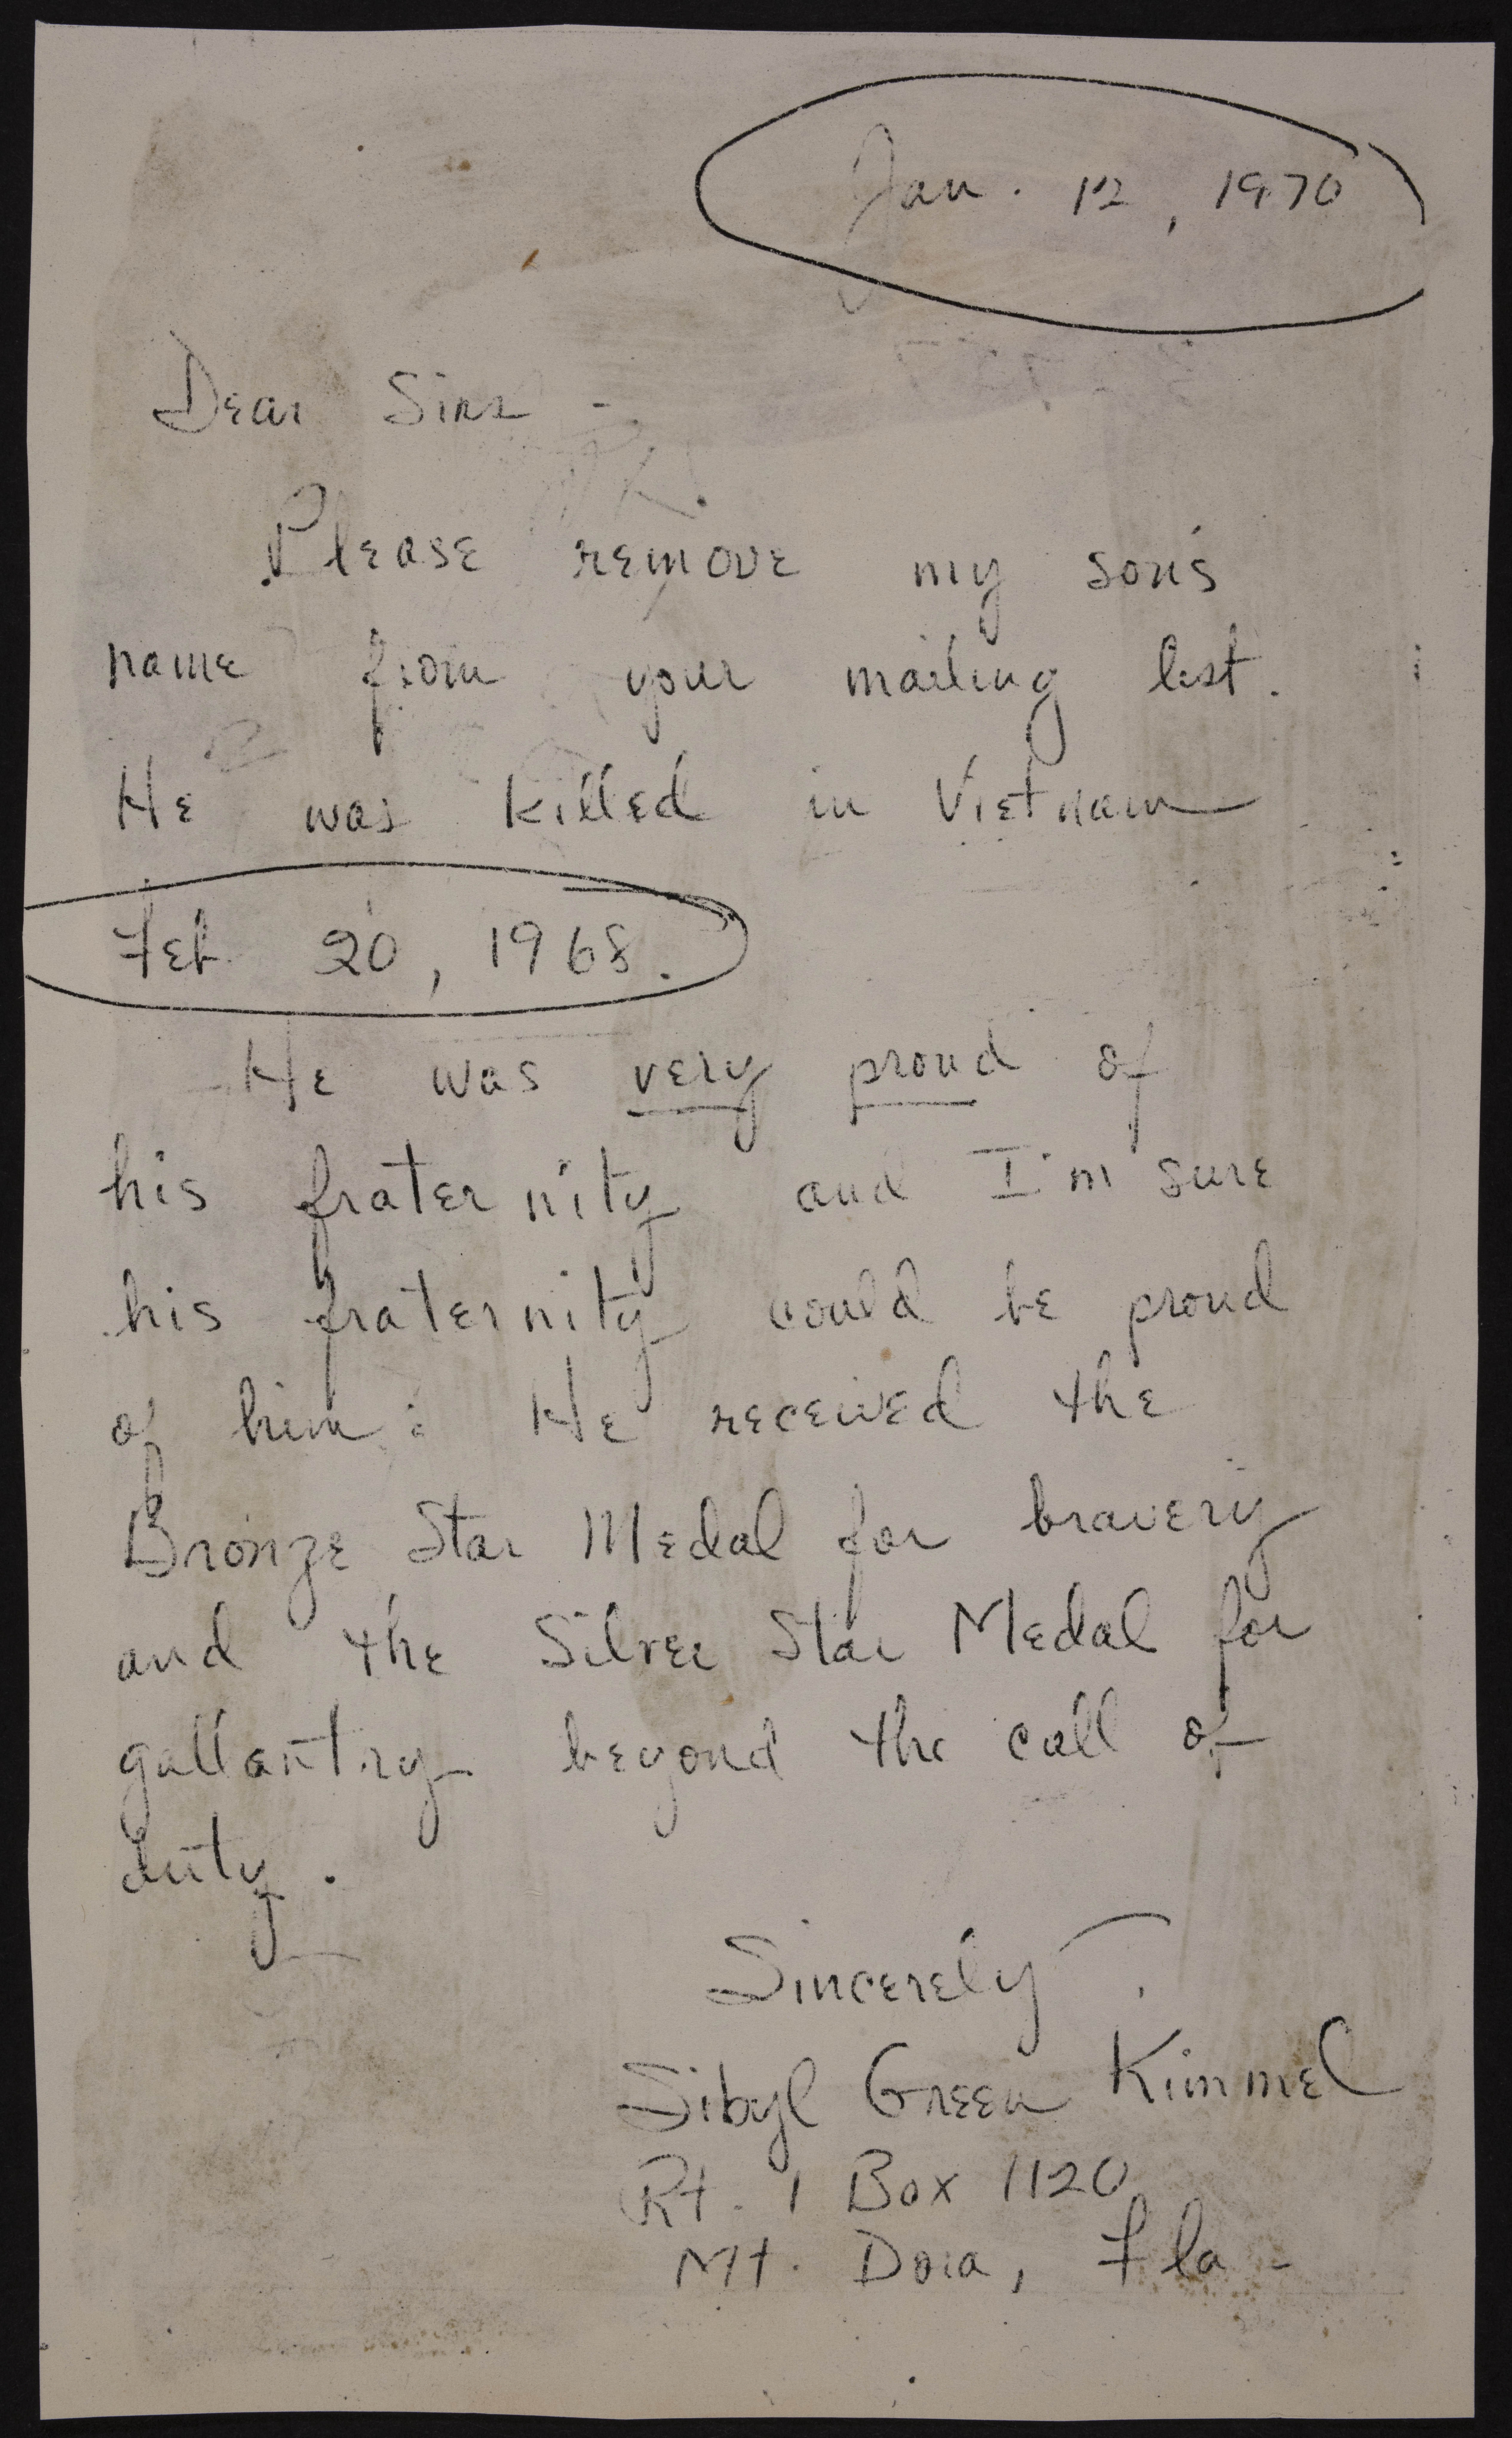 Jan. 12, 1970
Dear Sirs -
Please remove my son's
name from your mailing list.
He was killed in Vietnam
Feb 20, 1968.
He was very proud of
his fraternity and I'm sure
his fraternity could be proud
of him: He received the
Bronze Star Medal for bravery
and the Silver Star Medal for
gallantry beyond the call of
duty.
Sincerely,
Sibyl Green Kimmel
Rt. 1 Box 1120
Mt. Dora, Fla -